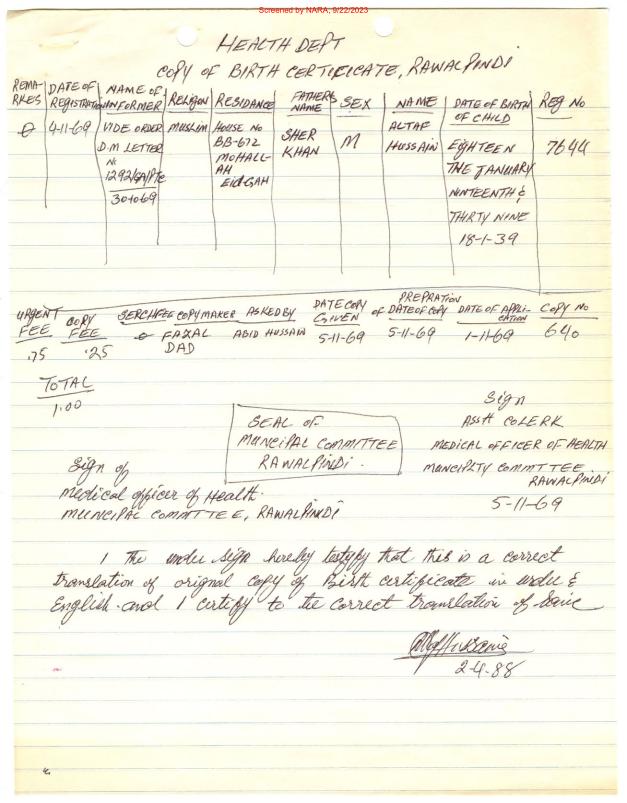 Screened by NARA, 9/22/2023
HEALTH DEPT
COPY OF BIRTH CERTIFICATE, RAWALPINDI
REMA-RKES DATE OF REGISTRATION NAME OF INFORMER RELIGION RESIDANCE FATHERS NAME SEX NAME DATE OF BIRTH OF CHILD REG No
4-11-69 VIDE ORDER MUSLIM HOUSE NO SHER M ALTAF EIGHTEEN 7644
D.M LETTER BB-672 KHAN HUSSAIN THE JANUARY
No MOHALL- NINTEENTH &
1292/GA/PTC AH THIRTY NINE
30-10-69 EIDGAH 18-1-39
URGENT FEE COPY FEE SERCH FEE COPY MAKER ASKED BY DATE COPY GIVEN PREPRATION OF DATE OF COPY DATE OF APPLI-CATION COPY NO
.75 .25 FAZAL DAD ABID HUSSAIN 5-11-69 5-11-69 1-11-69 640
TOTAL
1.00
SEAL OF
MUNCIPAL COMMITTEE
RAWALPINDI.
Sign
ASST COLERK
MEDICAL OFFICER OF HEALTH
MUNCIPLTY COMMTTEE
RAWALPINDI
5-11-69
Sign of
Medical officer of Health.
MUNCIPAL COMMTTEE, RAWALPINDI
I The under sign hereby testyfy that this is a correct
translation of orignal copy of Birth certificate in urdu &
English and I certify to the correct translation of same
2-4-88